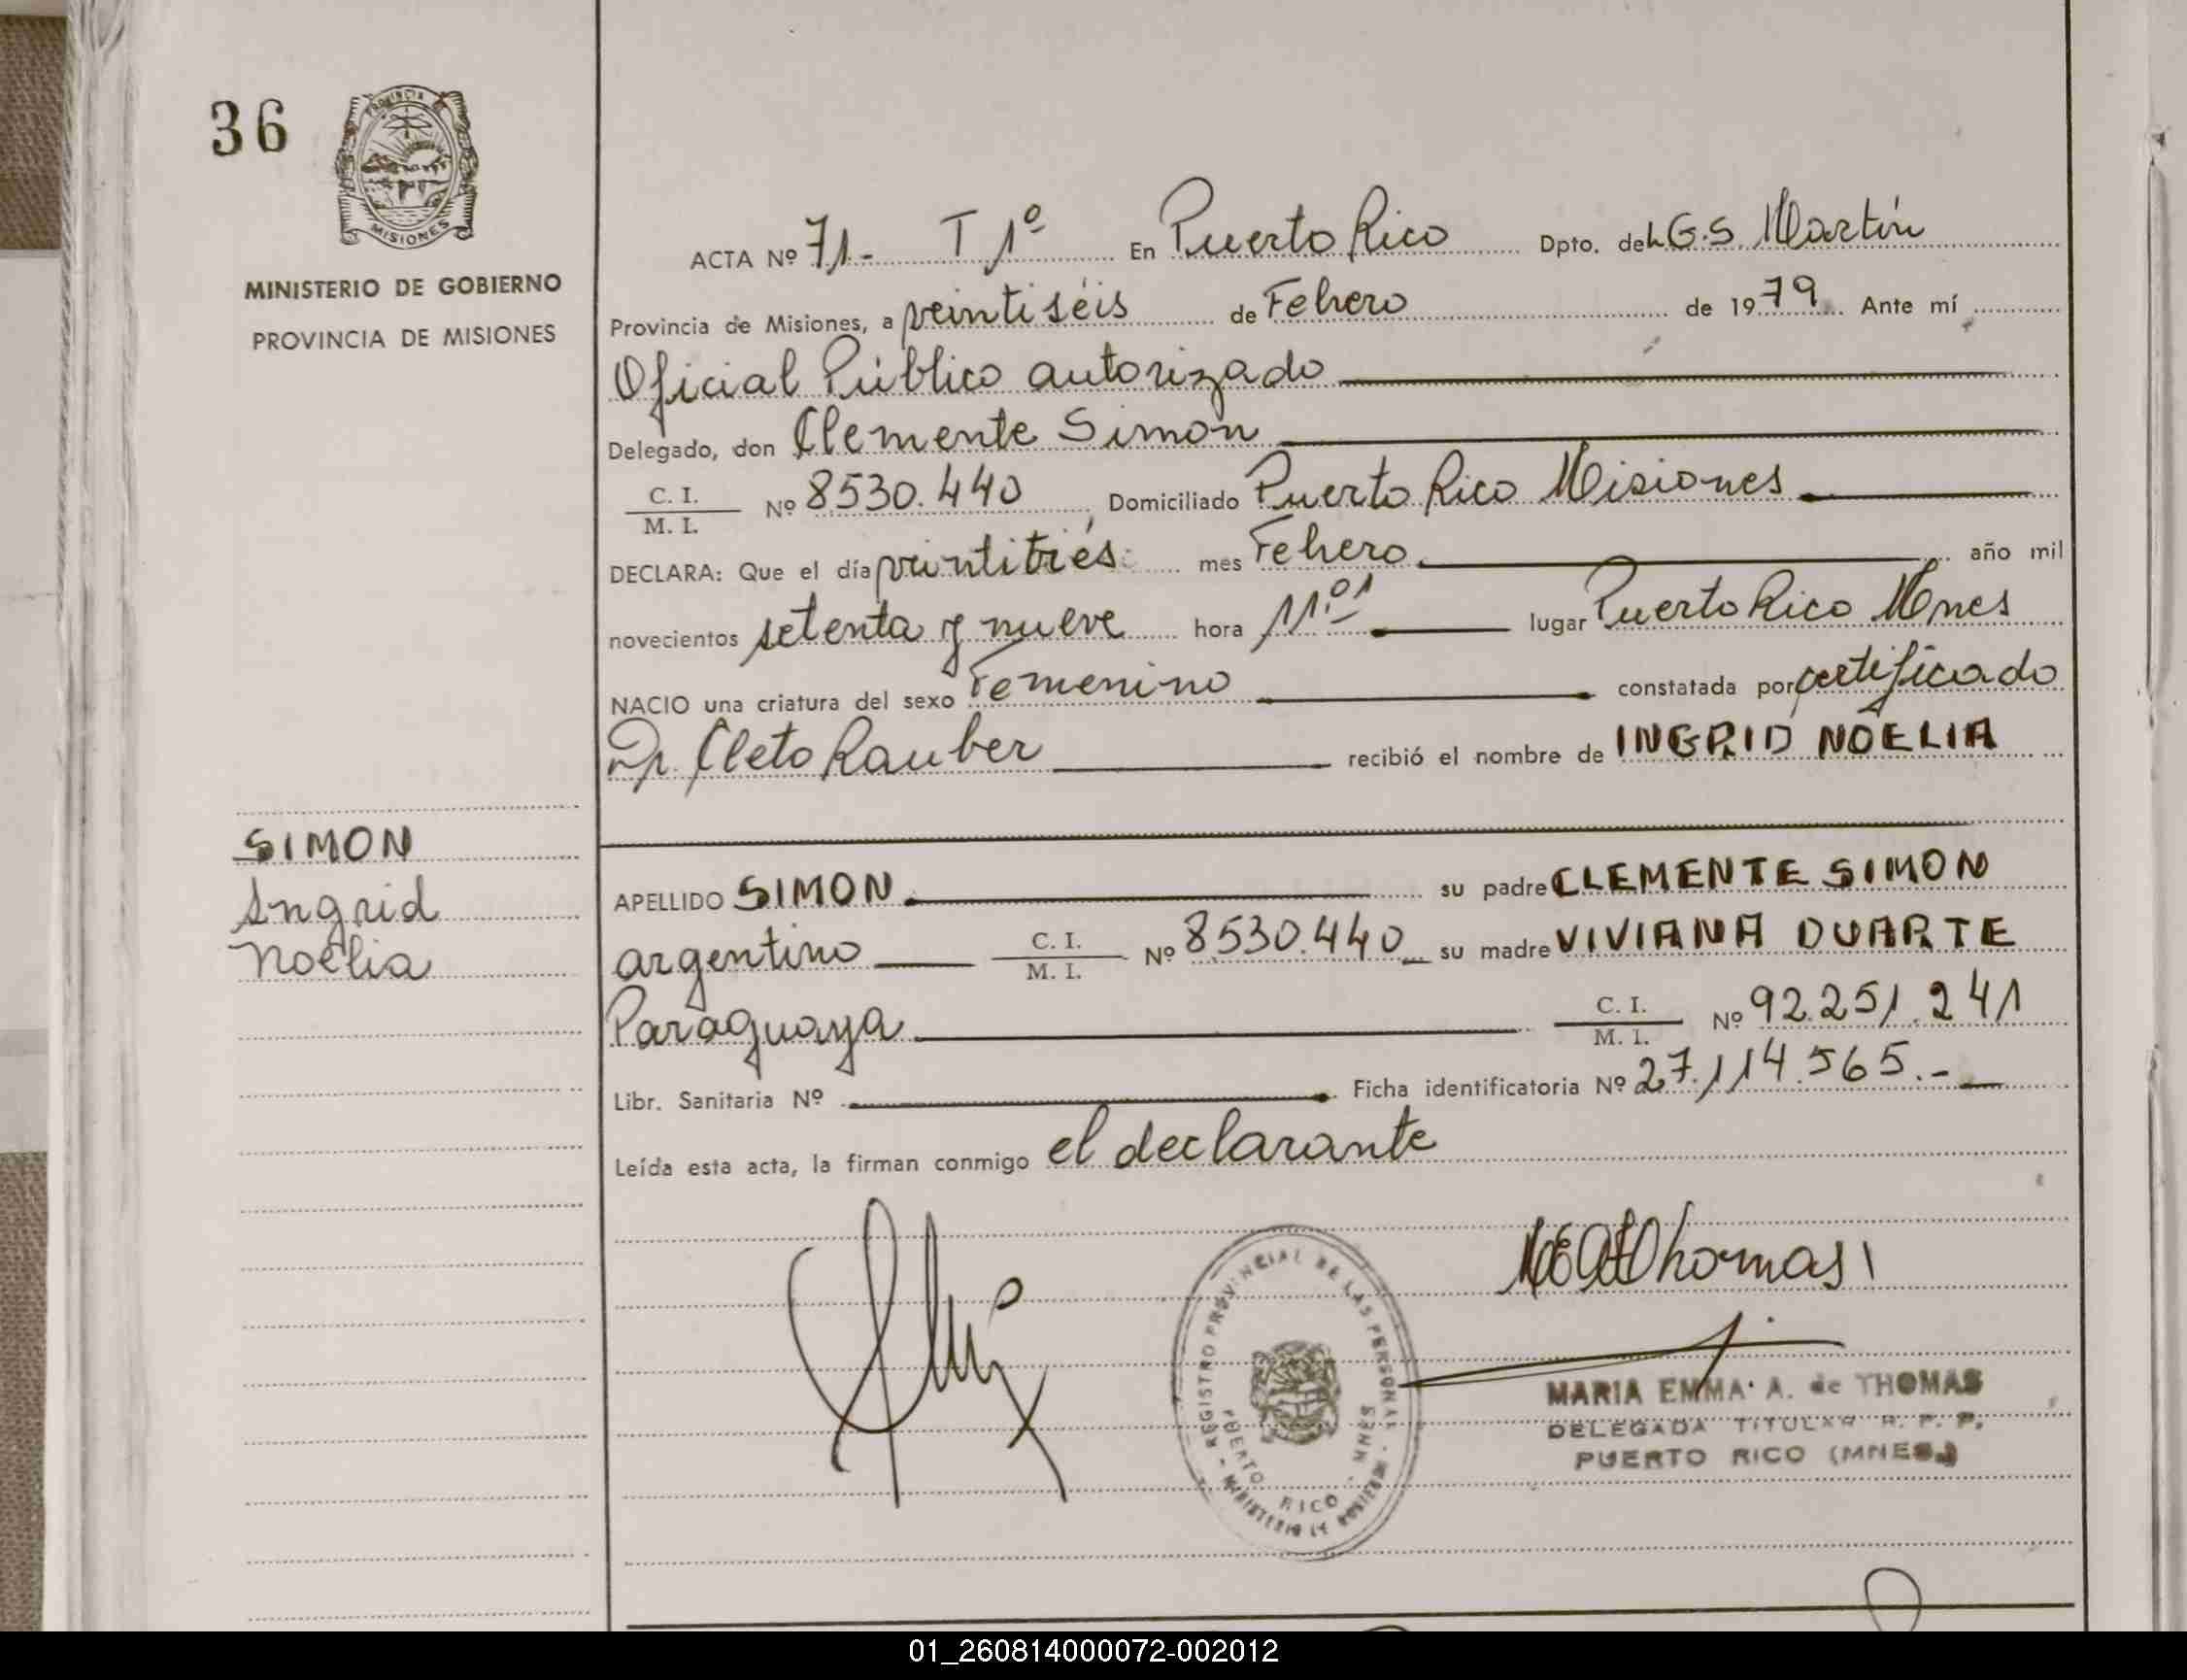 36
PROVINCIA
MISIONES
MINISTERIO DE GOBIERNO
PROVINCIA DE MISIONES
ACTA Nº 71.- T 1º En Puerto Rico Dpto. del L.G.S. Martín
Provincia de Misiones, a veintiséis de Febrero de 1979 Ante mí
Oficial Público autorizado
Delegado, don Clemente Simon
C. I.
M. I. Nº 8530.440, Domiciliado Puerto Rico Misiones
DECLARA: Que el día veintitrés mes Febrero año mil
novecientos setenta y nueve hora 11.01 lugar Puerto Rico Mnes
NACIO una criatura del sexo Femenino constatada por certificado
Dr. Cleto Rauber recibió el nombre de INGRID NOELIA
SIMON
Ingrid
Noelia
APELLIDO SIMON su padre CLEMENTE SIMON
argentino C. I.
M. I. Nº 8530.440 su madre VIVIANA DUARTE
Paraguaya C. I.
M. I. Nº 92.251.241
Libr. Sanitaria Nº Ficha identificatoria Nº 27.114.565.-
Leída esta acta, la firman conmigo el declarante
REGISTRO PROVINCIAL DE LAS PERSONAS - MINISTERIO DE GOBIERNO -
PUERTO RICO - MNES
MARIA EMMA A. de THOMAS
DELEGADA TITULAR R. P. P.
PUERTO RICO (MNES.)
01_260814000072-002012